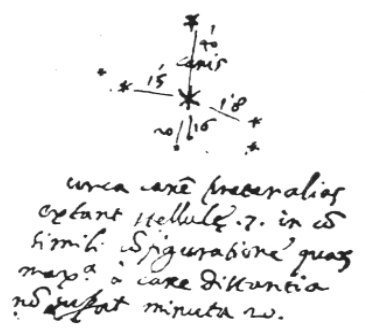 40
canis
15
18
20 16
circa canē preter alias
extant stellulę .7. in cō
simili cōfiguratione
maxᵃ à cane distantia
nō suꝑat minuta 20.